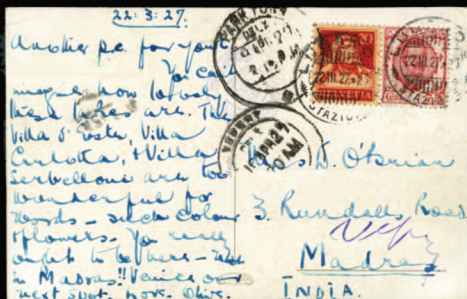 22.3.27.
Another p.c. for you!
You can
imagine how lovely
these lakes are. The
Villa d'Este, Villa
Carlotta, & Villa
Serbelloni are too
wonderful for
words — such colour
& flowers. You really
ought to be here — not
in Madras!! Venice our
next spot.
PARK TOWN
2.15 P.M
20
LUINO
STAZIONE
10 AM
D. O'Brien
3. Rundalls Road
Vepery
Madras
INDIA.